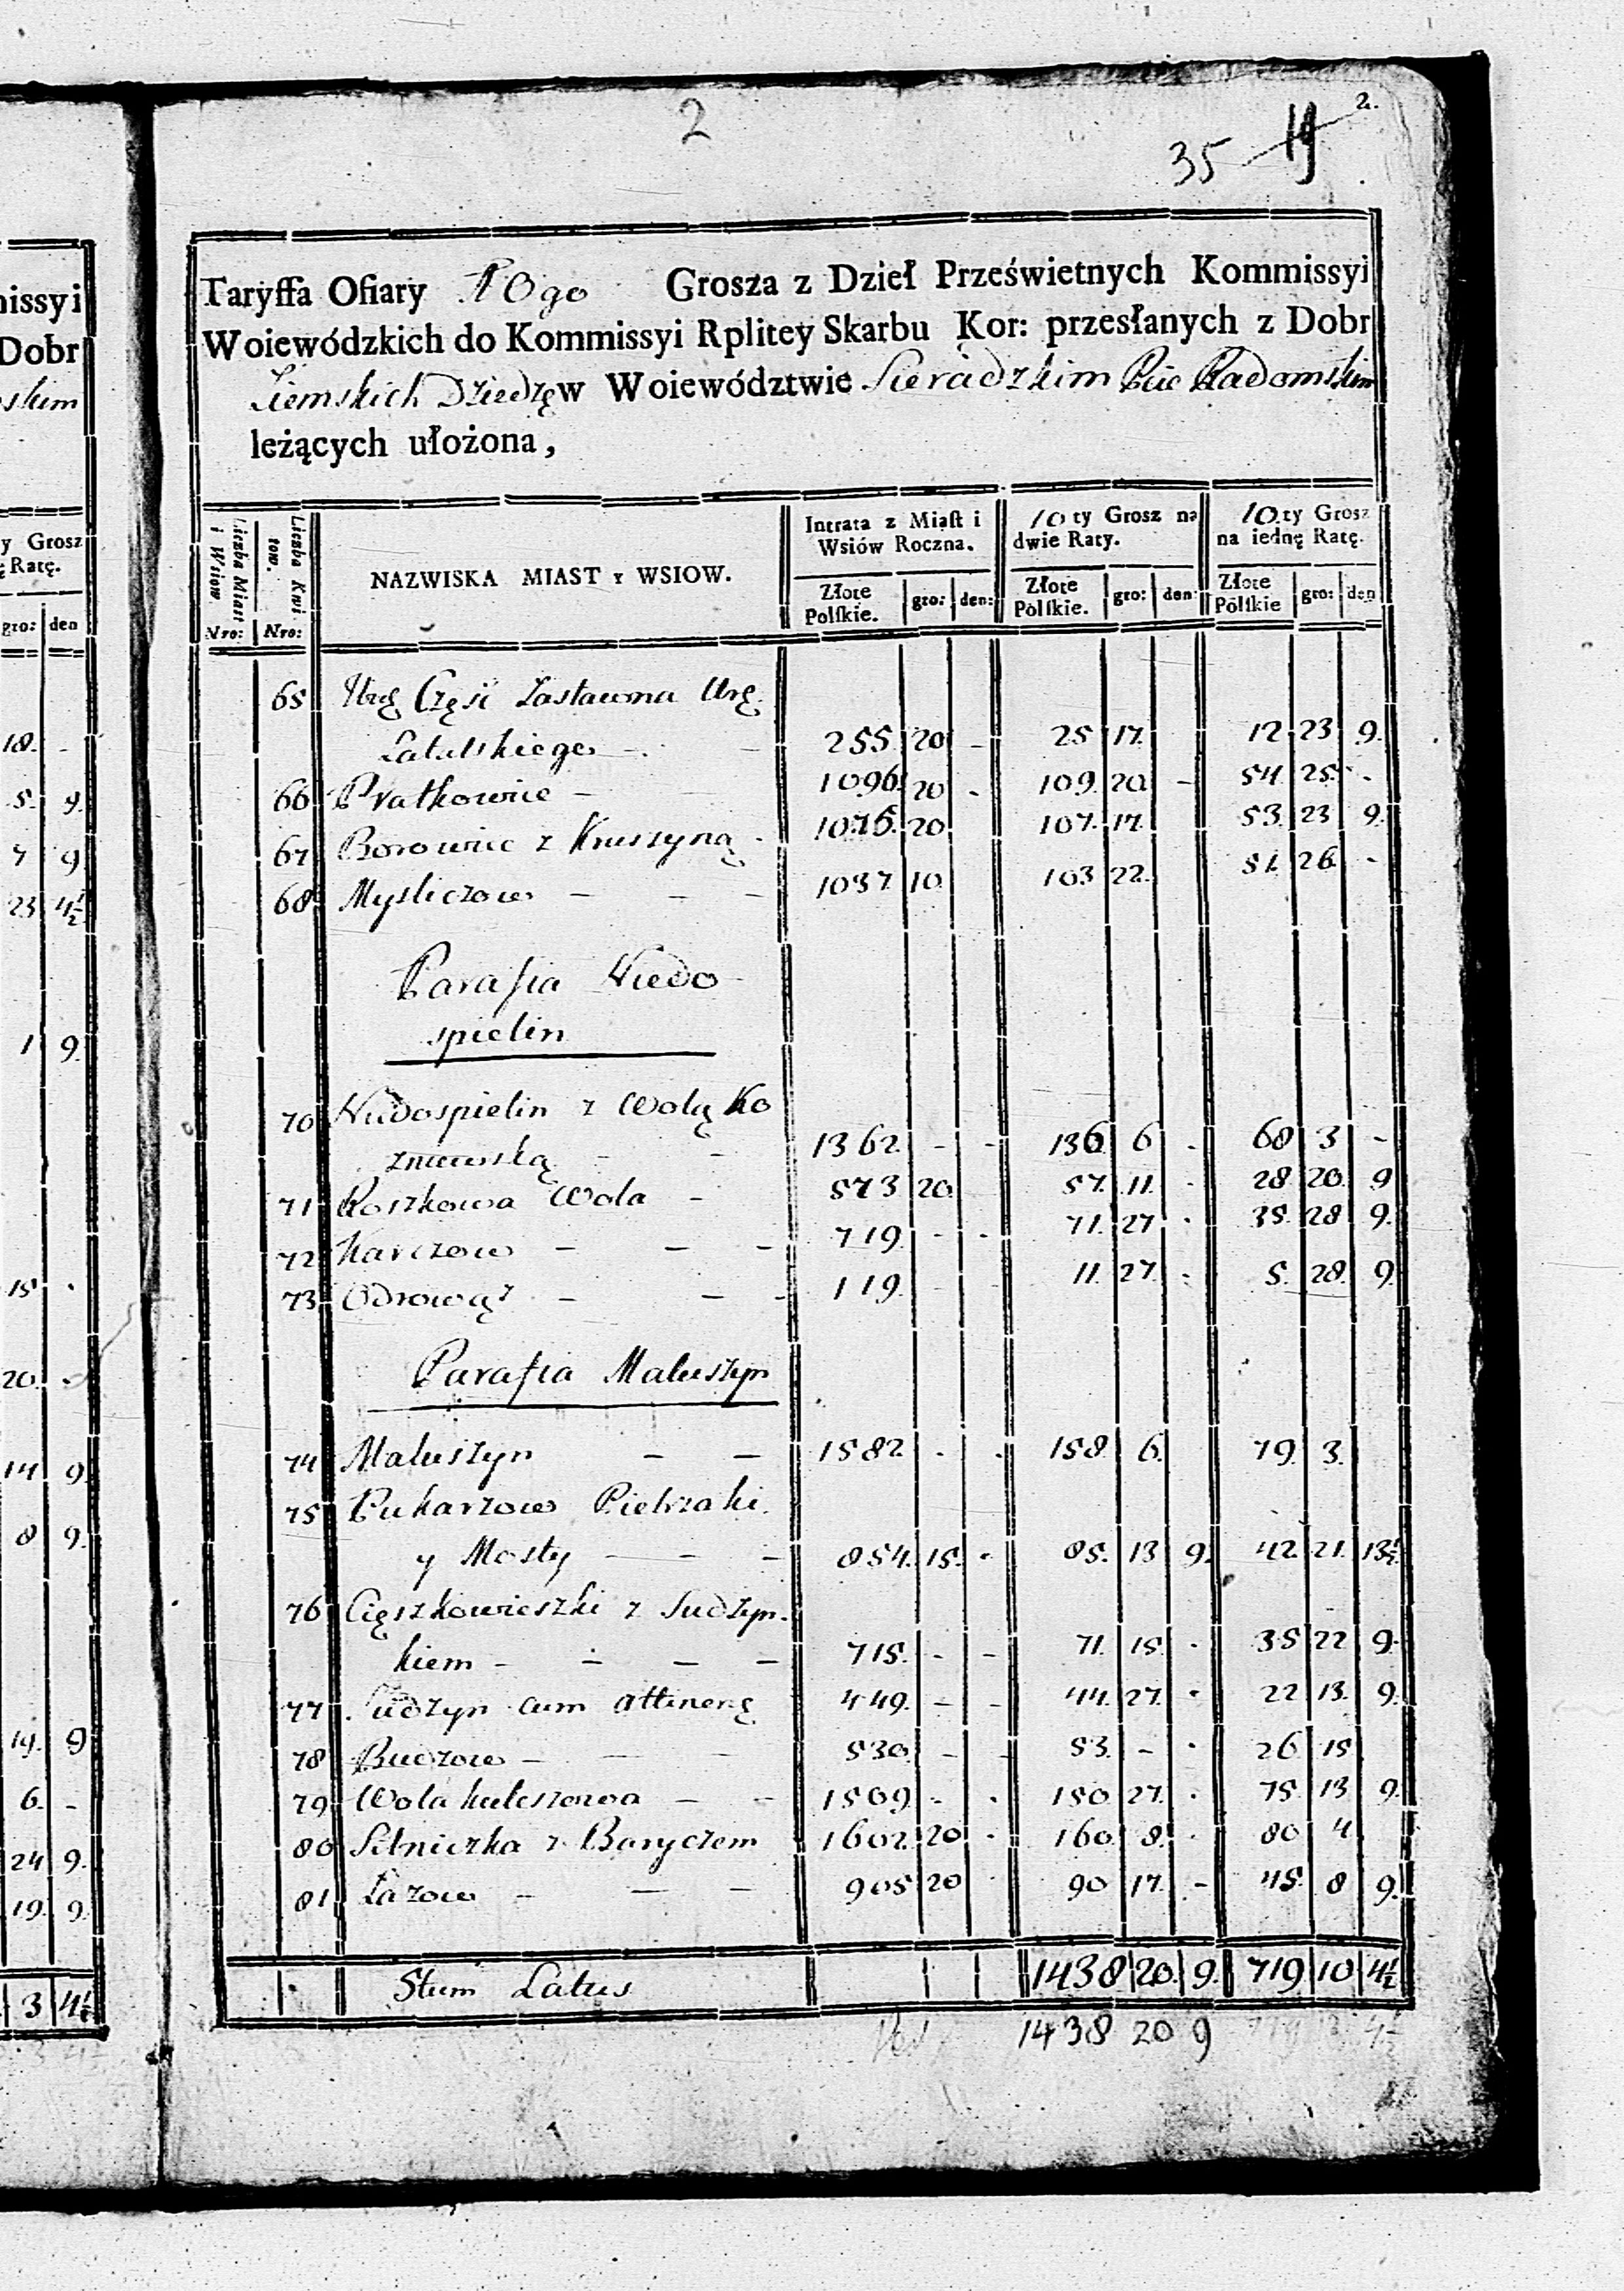 2
2.
35 19
Taryffa Ofiary 10go Grosza z Dzieł Prześwietnych Kommissyi
Woiewódzkich do Kommissyi Rplitey Skarbu Kor: przesłanych z Dobr
Ziemskich Dziedz w Woiewództwie Sieradzkim Pcie Radomskim
leżących ułożona,
Liczba Miast i Wsiow Nro: Liczba Kwi tow. Nro: NAZWISKA MIAST Y WSIOW. Intrata z Miast i Wsiów Roczna. 10 ty Grosz na dwie Raty. 10.ty Grosz na iednę Ratę.
Złote Polskie. gro: den: Złote Polskie. gro: den: Złote Polskie gro: den
65 Części Zastawna
255 20 - 25 17. 12 23 9.
66 Pratkowice - 1096 20 - 109. 20 - 54 25. -
67 Borowiec z Kruszyną - 1075. 20 107. 17. 53. 23 9.
68 Mysliczow - - - 1037. 10. 103 22. 51. 26 -
Parafia Niedo
spielin
70 Niedospielin z Wolą Ko
zniewską - - 1362. - - 136 6 - 68 3 -
71 Koszkowa Wola - 573 20 57. 11. - 28 20. 9
72 Karczow - - - 719. - - 71. 27 . 35. 28 9.
73 Odrowąż - - - 119. - 11. 27. - 5. 28. 9.
Parafia Maluszyn
74 Maluszyn - - 1582. . . 158 6. 79. 3.
75 Pukarzow Pietrzaki.
y Mosty - - - 854. 15. . 85. 13 9. 42. 21. 13½
76 Cięszkowieszki z Sudzyn-
kiem - - - - 715. - - 71. 15 . 35 22 9.
77 Sudzyn cum attineng 449. - - 44. 27. . 22 13. 9.
78 Budzow - - - 530. - - 53. - . 26 15
79 Wola kuleszowa - - 1509. - . 150 27. . 75. 13 9.
80 Silniczka z Baryczem 1602. 20 . 160. 8. . 80 4
81 Łazow - - - 905 20 90 17. - 45. 8 9.
Stum Latus 1438 20. 9. 719 10 4½
1438 20 9